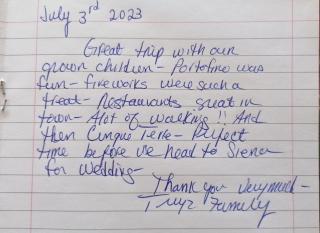 July 3rd 2023
Great trip with our
grown children - Portofino was
fun - fireworks were such a
treat - Restaurants great in
town - Alot of walking !! And
then Cinque Terre - Perfect
time before we head to Siena
for Wedding -
Thank you Very much -
Family